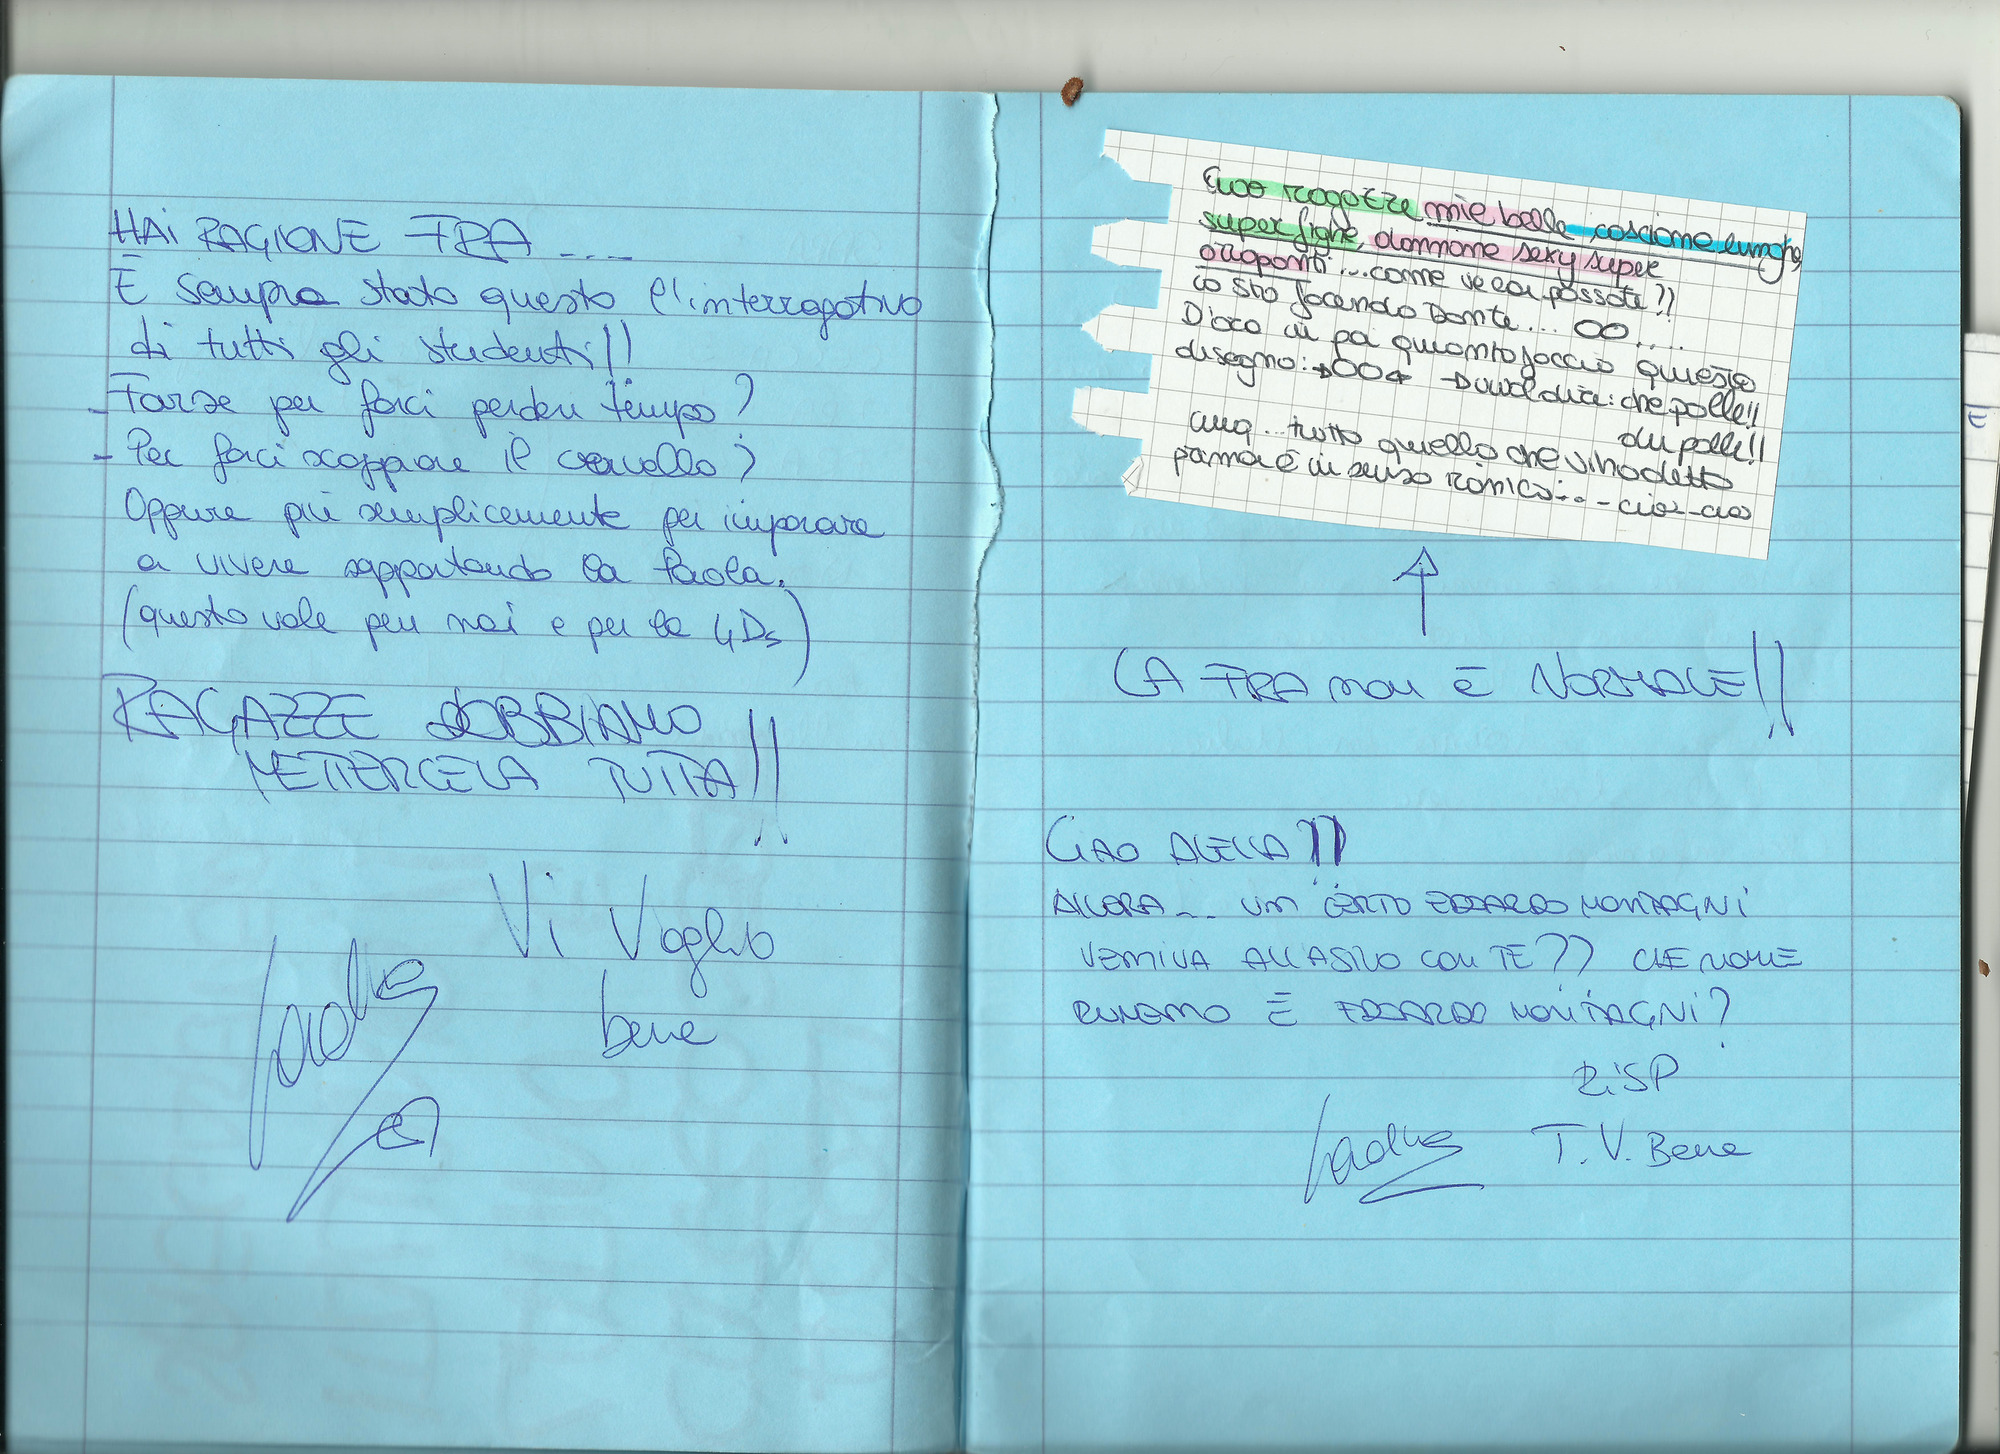 HAI RAGIONE FRA ....
È sempre stato questo l'interrogativo
di tutti gli studenti!!
- Forse per farci perdere tempo?
- Per farci scoppiare il cervello?
Oppure più semplicemente per imparare
a vivere sopportando la Paola.
(questo vale per noi e per la 4Ds)
RAGAZZE DOBBIAMO
METTERCELA TUTTA!!
Vi Voglio
bene
Ciao ragazze mie belle cosciome lunghe
super fighe, donnone sexy super
... come ve la passate??
io sto facendo Dante.... OO....
disegno: →OO← → vuol dire: che palle!!
du palle!!
cmq... tutto quello che vi ho detto
è in senso ironico... - ciao - ciao
LA FRA non È NORMALE!!
CIAO ALELLA!!
ALLORA... UN CERTO EDOARDO MONTAGNI
VENIVA ALL'ASILO CON TE?? CHE NOME
È EDOARDO MONTAGNI?
RISP
T.V. Bene
E